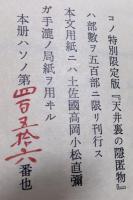 コノ特別限定版『天井裏の隠匿物』
ハ部數ヲ五百部ニ限リ刊行ス
本文用紙ニハ土佐國高岡小松直彌
ガ手漉ノ局紙ヲ用ヰル
本册ハソノ第四百五拾六番也